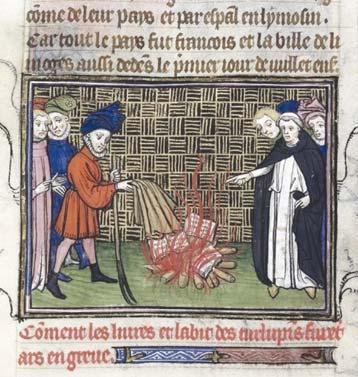 cõme de leur pays et par espãl en lymosin.
Car tout le pays fut francois et la ville de li
moges aussi dedẽs le p̃mier iour de iuillet ens.
Cõment les liures et labit des turlupĩs furẽt
ars en greue.